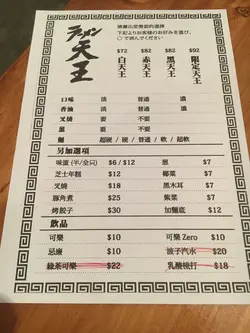 ラーメン天王
請圈出您喜愛的選擇
下記よりお客様のお好みを選び、
○で囲んでください
$72 $82 $82 $92
白天王 赤天王 黑天王 限定天王
口味 淡 普通 濃
香油 淡 普通 濃
叉燒 要 不要
蔥 要 不要
麵 超硬 / 硬 / 普通 / 軟 / 超軟
另加選項
味蛋 (半/全只) $6 / $12 蔥 $7
芝士年糕 $12 椰菜 $7
叉燒 $18 黑木耳 $7
豚角煮 $25 飯菜 $7
烤餃子 $30 加麵底 $12
飲品
可樂 $10 可樂 Zero $10
忌廉 $10 波子汽水 $20
綠茶可樂 $22 乳酸梳打 $18